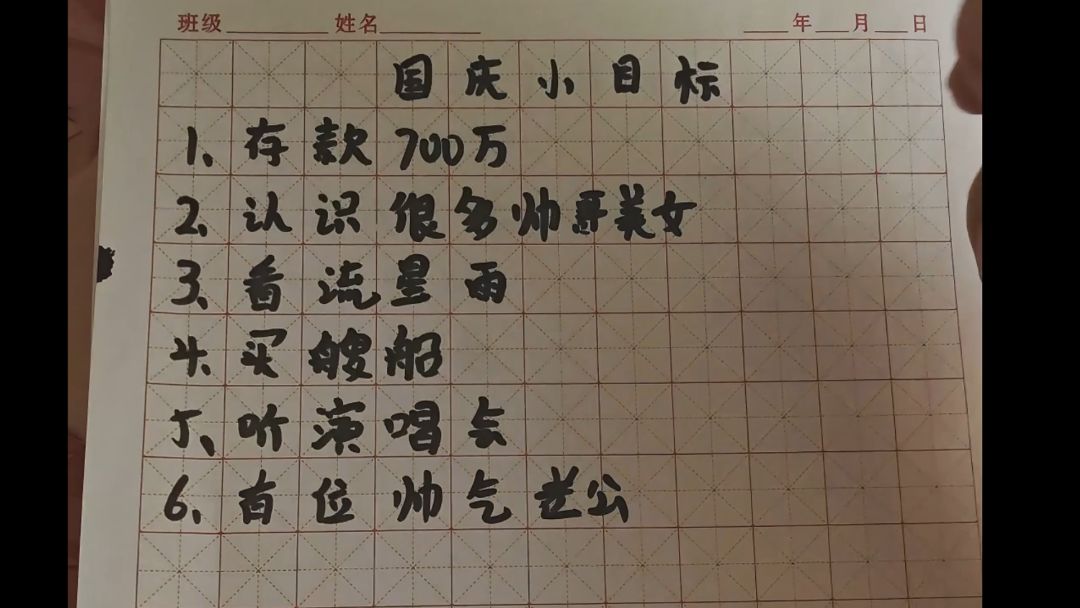 班级 姓名 年 月 日
国庆小目标
1、存款700万
2、认识很多帅哥美女
3、看流星雨
4、买艘船
5、听演唱会
6、有位帅气老公